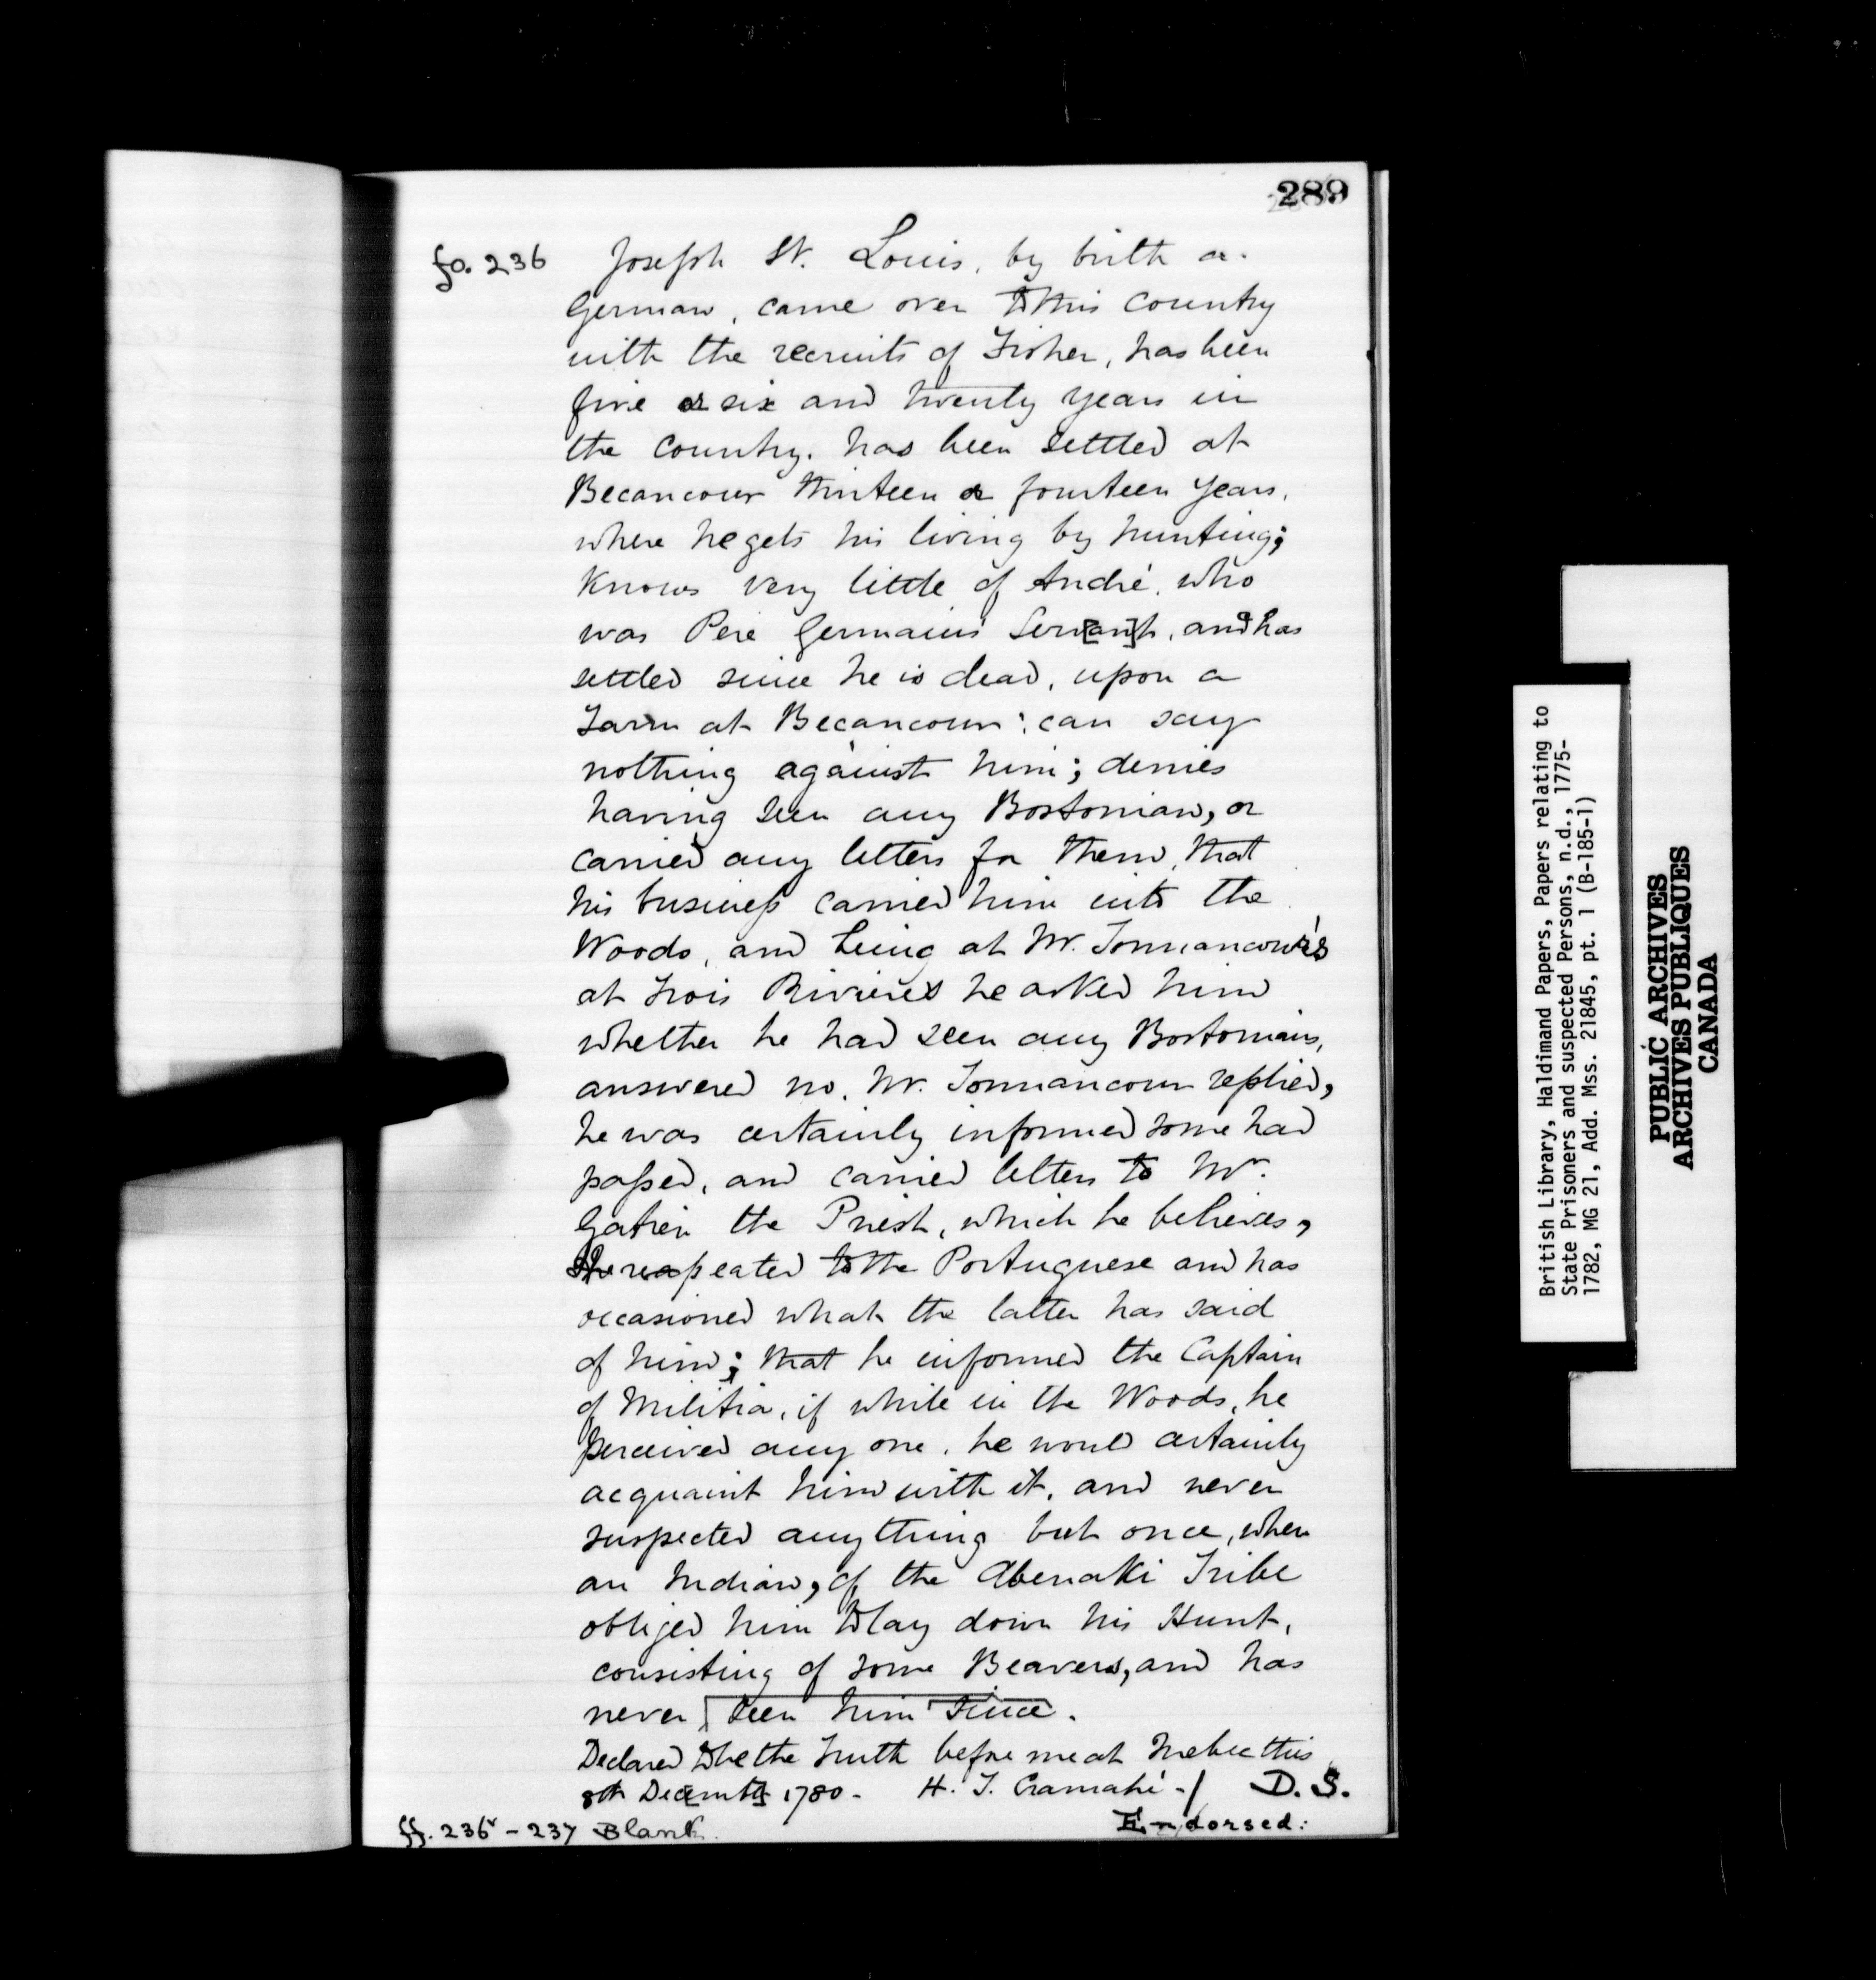 289
fo. 236 Joseph St. Louis, by birth a
German, came over to this country
with the recruits of Fisher, has been
five or six and twenty years in
the country. has been settled at
Becancour thirteen or fourteen years,
where he gets his living by hunting;
knows very little of André, who
was Pere Germains Serv[an]t, and has
settled since he is dead, upon a
Farm at Becancour: can say
nothing against him; denies
having seen any Bostonian, or
carried any letters for them, that
his business carried him into the
Woods, and being at Mr. Tonnancour's
at Trois Rivieres he asked him
whether he had seen any Bostonians,
answered no. Mr. Tonnancour replied,
he was certainly informed some had
passed, and carried letters to Mr.
Gatien the Priest, which he believes,
he repeated to the Portuguese and has
occasioned what the latter has said
of him; that he informed the Captain
of Militia, if while in the Woods, he
perceived any one, he would certainly
acquaint him with it, and never
suspected anything but once, when
an Indian, of the Abenaki Tribe
obliged him to lay down his Hunt,
consisting of some Beavers, and has
never seen him since.
Declared to be the Truth before me at Quebec this
8th Dec[emb]er 1780 - H. T. Cramahé -/ D. S.
ff. 236v - 237 Blank. Endorsed:
British Library, Haldimand Papers, Papers relating to
State Prisoners and suspected Persons, n.d., 1775-
1782, MG 21, Add. Mss. 21845, pt. 1 (B-185-1)
PUBLIC ARCHIVES
ARCHIVES PUBLIQUES
CANADA